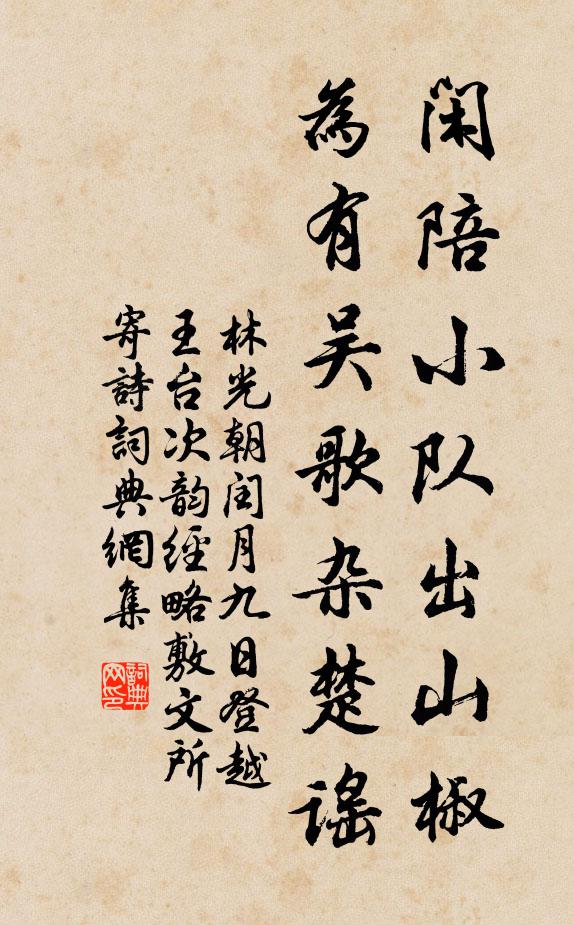 闲陪小队出山椒
為有吴歌杂楚謡
林光朝闰月九日登越
王台次韵經略敷文所
寄詩詞典網集
詞典
网印